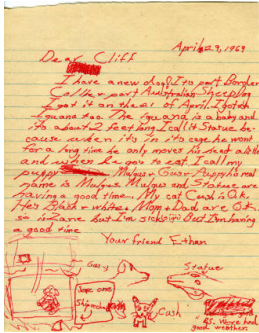 April 29, 1969
Dear Cliff
I have a new dog! Its part Border
Collie + part Australian Sheepdog
I got it on the 21 of April. I got a
Iguana too. The Iguana is a baby and
its about 2 feet long I call it Statue be-
cause when its in its cage he wont
for a long time he only moves his head and
and when he go to eat. I call my
puppy Mulgus Guar Puppy's real
name is Mulgus Mulgus and Statue are
having a good time. My cat Cash is O.k.
He's Black + white. Mom + Dad are O.K.
so is Jane but I'm sick. But Im having
a good time
Your friend Ethan
Statue
Cash
P.S. Were had
good weather.